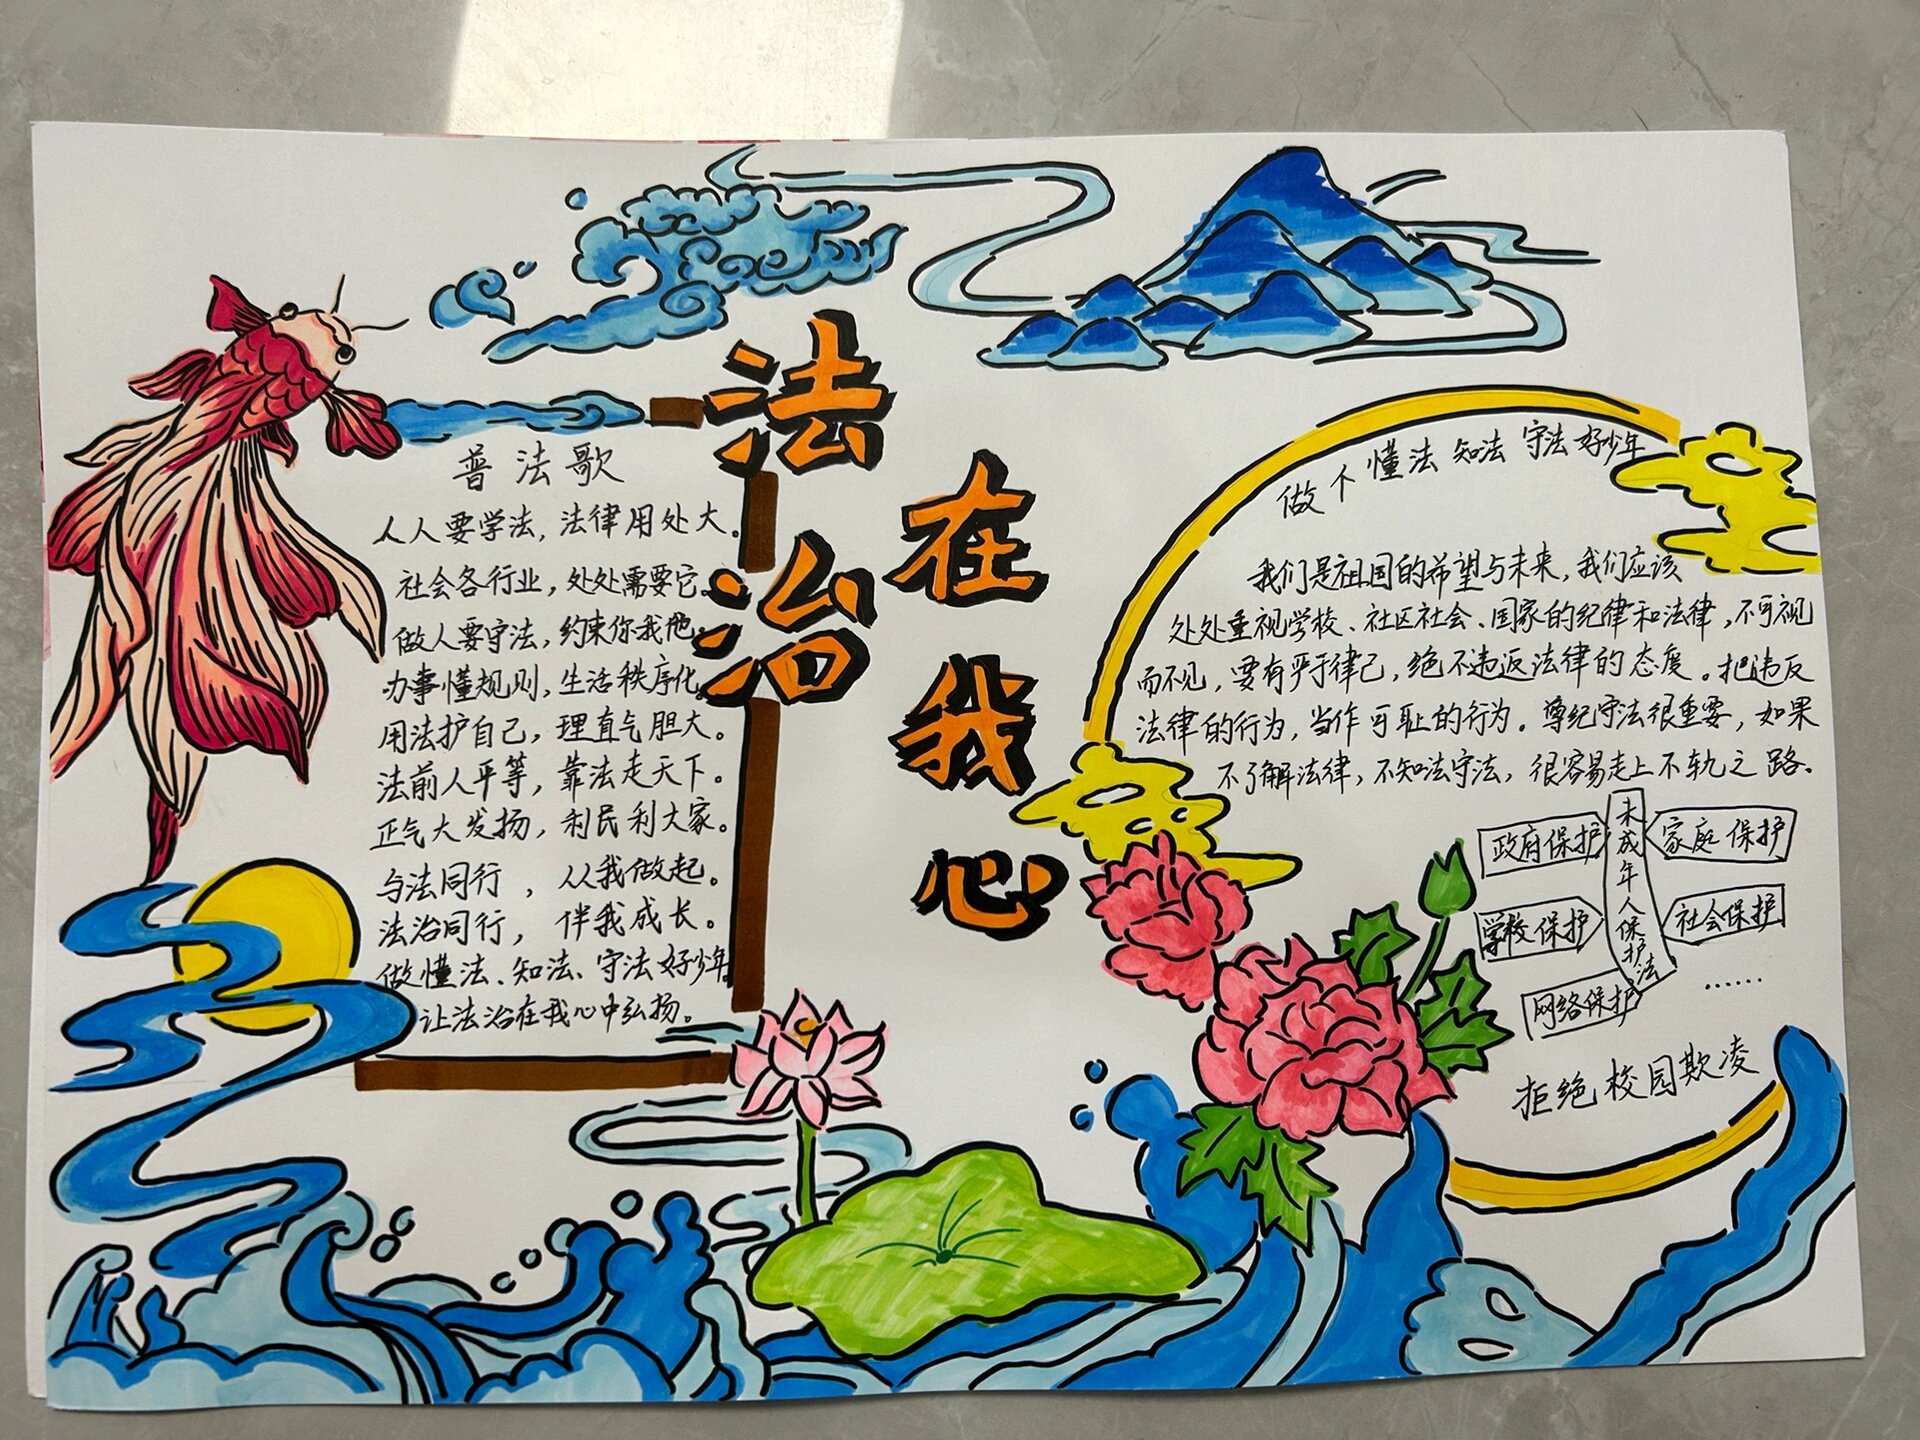 法治
在我心
普法歌
人人要学法,法律用处大。
社会各行业,处处需要它。
做人要守法,约束你我他。
办事懂规则,生活秩序化。
用法护自己,理直气胆大。
法前人平等,靠法走天下。
正气大发扬,利民利大家。
与法同行,从我做起。
法治同行,伴我成长。
做懂法、知法、守法好少年。
让法治在我心中弘扬。
做个懂法知法守法好少年
我们是祖国的希望与未来,我们应该
处处重视学校、社区社会、国家的纪律和法律,不可视
而不见,要有严于律己,绝不违返法律的态度。把违反
法律的行为,当作可耻的行为。尊纪守法很重要,如果
不了解法律,不知法守法,很容易走上不轨之路.
未成年人保护法
政府保护
家庭保护
学校保护
社会保护
网络保护
......
拒绝校园欺凌